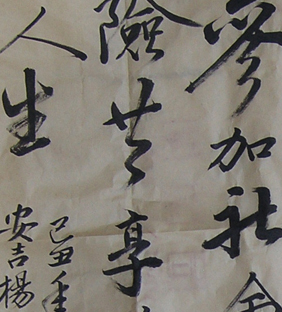 參加社會
險共享
人生
己丑年
安吉楊